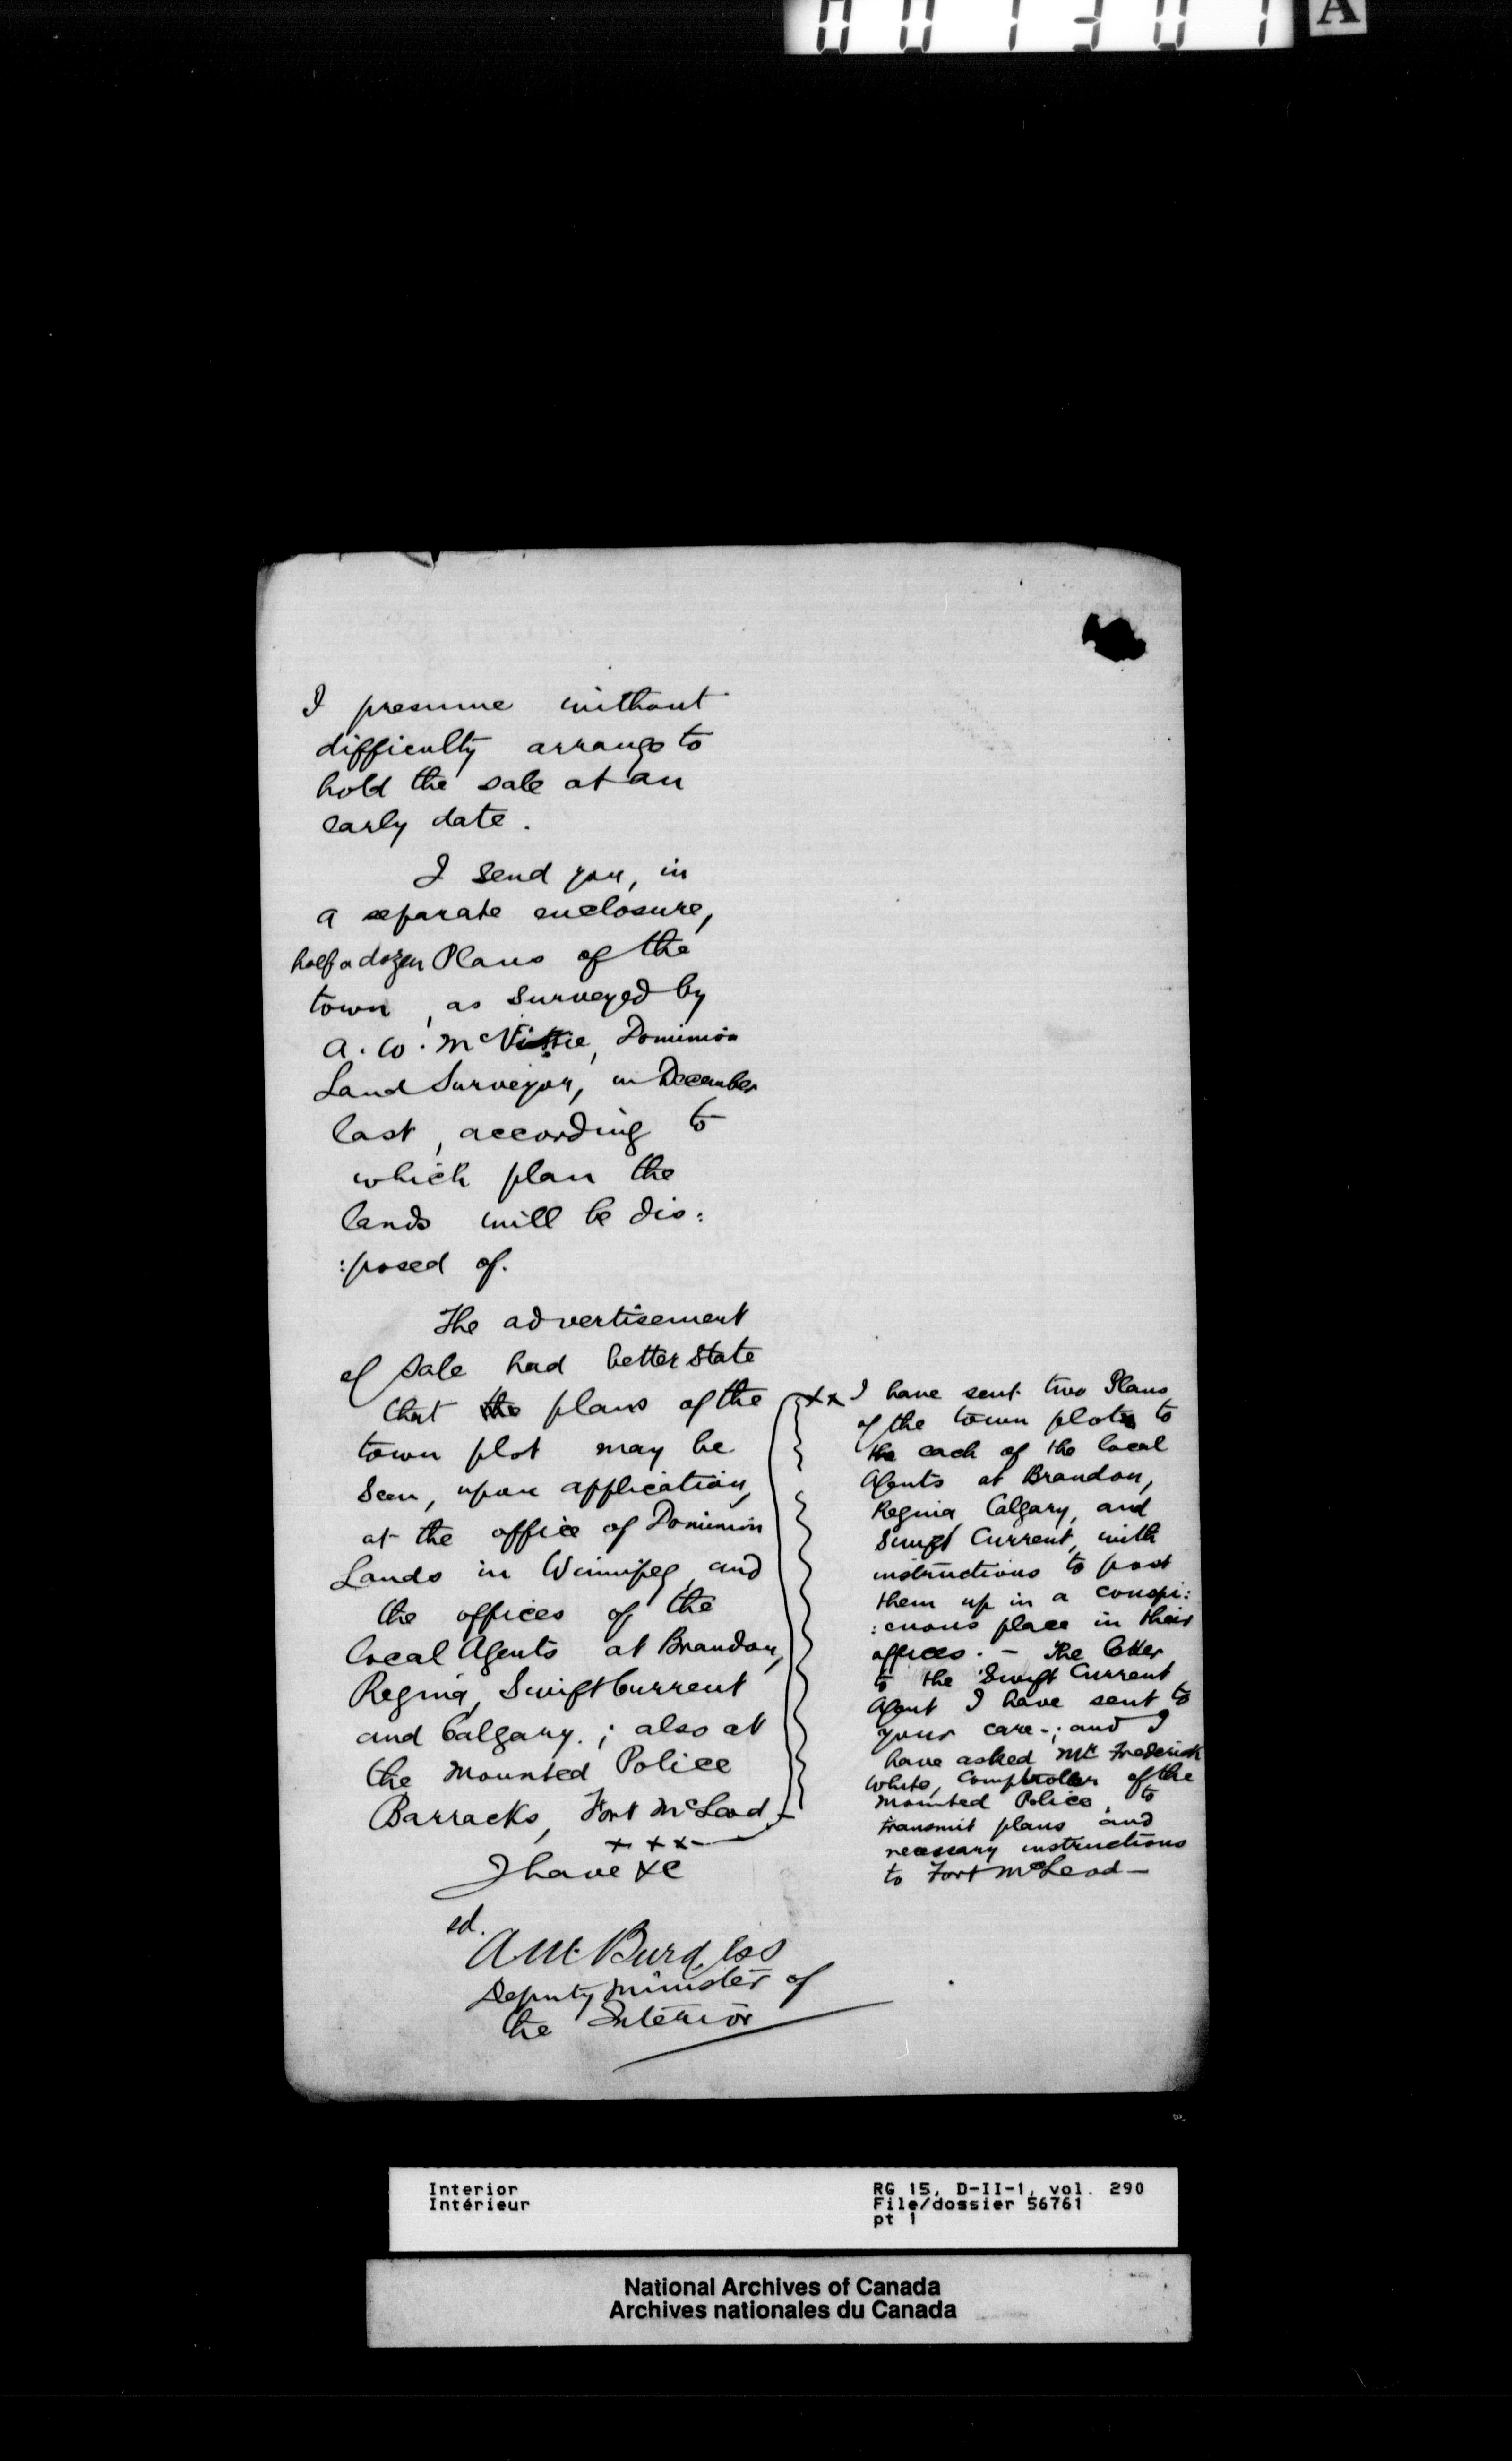 001301
A
I presume without
difficulty arrange to
hold the sale at an
early date.
I send you, in
a separate enclosure,
half a dozen Plans of the
town, as surveyed by
A. W. McVittie, Dominion
Land Surveyor, in December
last, according to
which plan the
lands will be dis:
:posed of.
The advertisement
of sale had better state
that the plans of the
town plot may be
seen, upon application,
at the office of Dominion
Lands in Winnipeg, and
the offices of the
local Agents at Brandon,
Regina, Swift Current
and Calgary.; also at
the Mounted Police
Barracks, Fort McLeod.
+ + x
I have &c
sd.
A M Burgess
Deputy Minister of
the Interior
xx I have sent two Plans
of the town plots to
the each of the local
Agents at Brandon,
Regina, Calgary, and
Swift Current, with
instructions to post
them up in a conspi:
:cuous place in their
offices. - The letter
to the Swift Current
Agent I have sent to
your care -; and I
have asked Mr Frederick
White, Comptroller of the
Mounted Police, to
transmit plans and
necessary instructions
to Fort McLeod -
Interior
Intérieur
RG 15, D-II-1, vol. 290
File/dossier 56761
pt 1
National Archives of Canada
Archives nationales du Canada